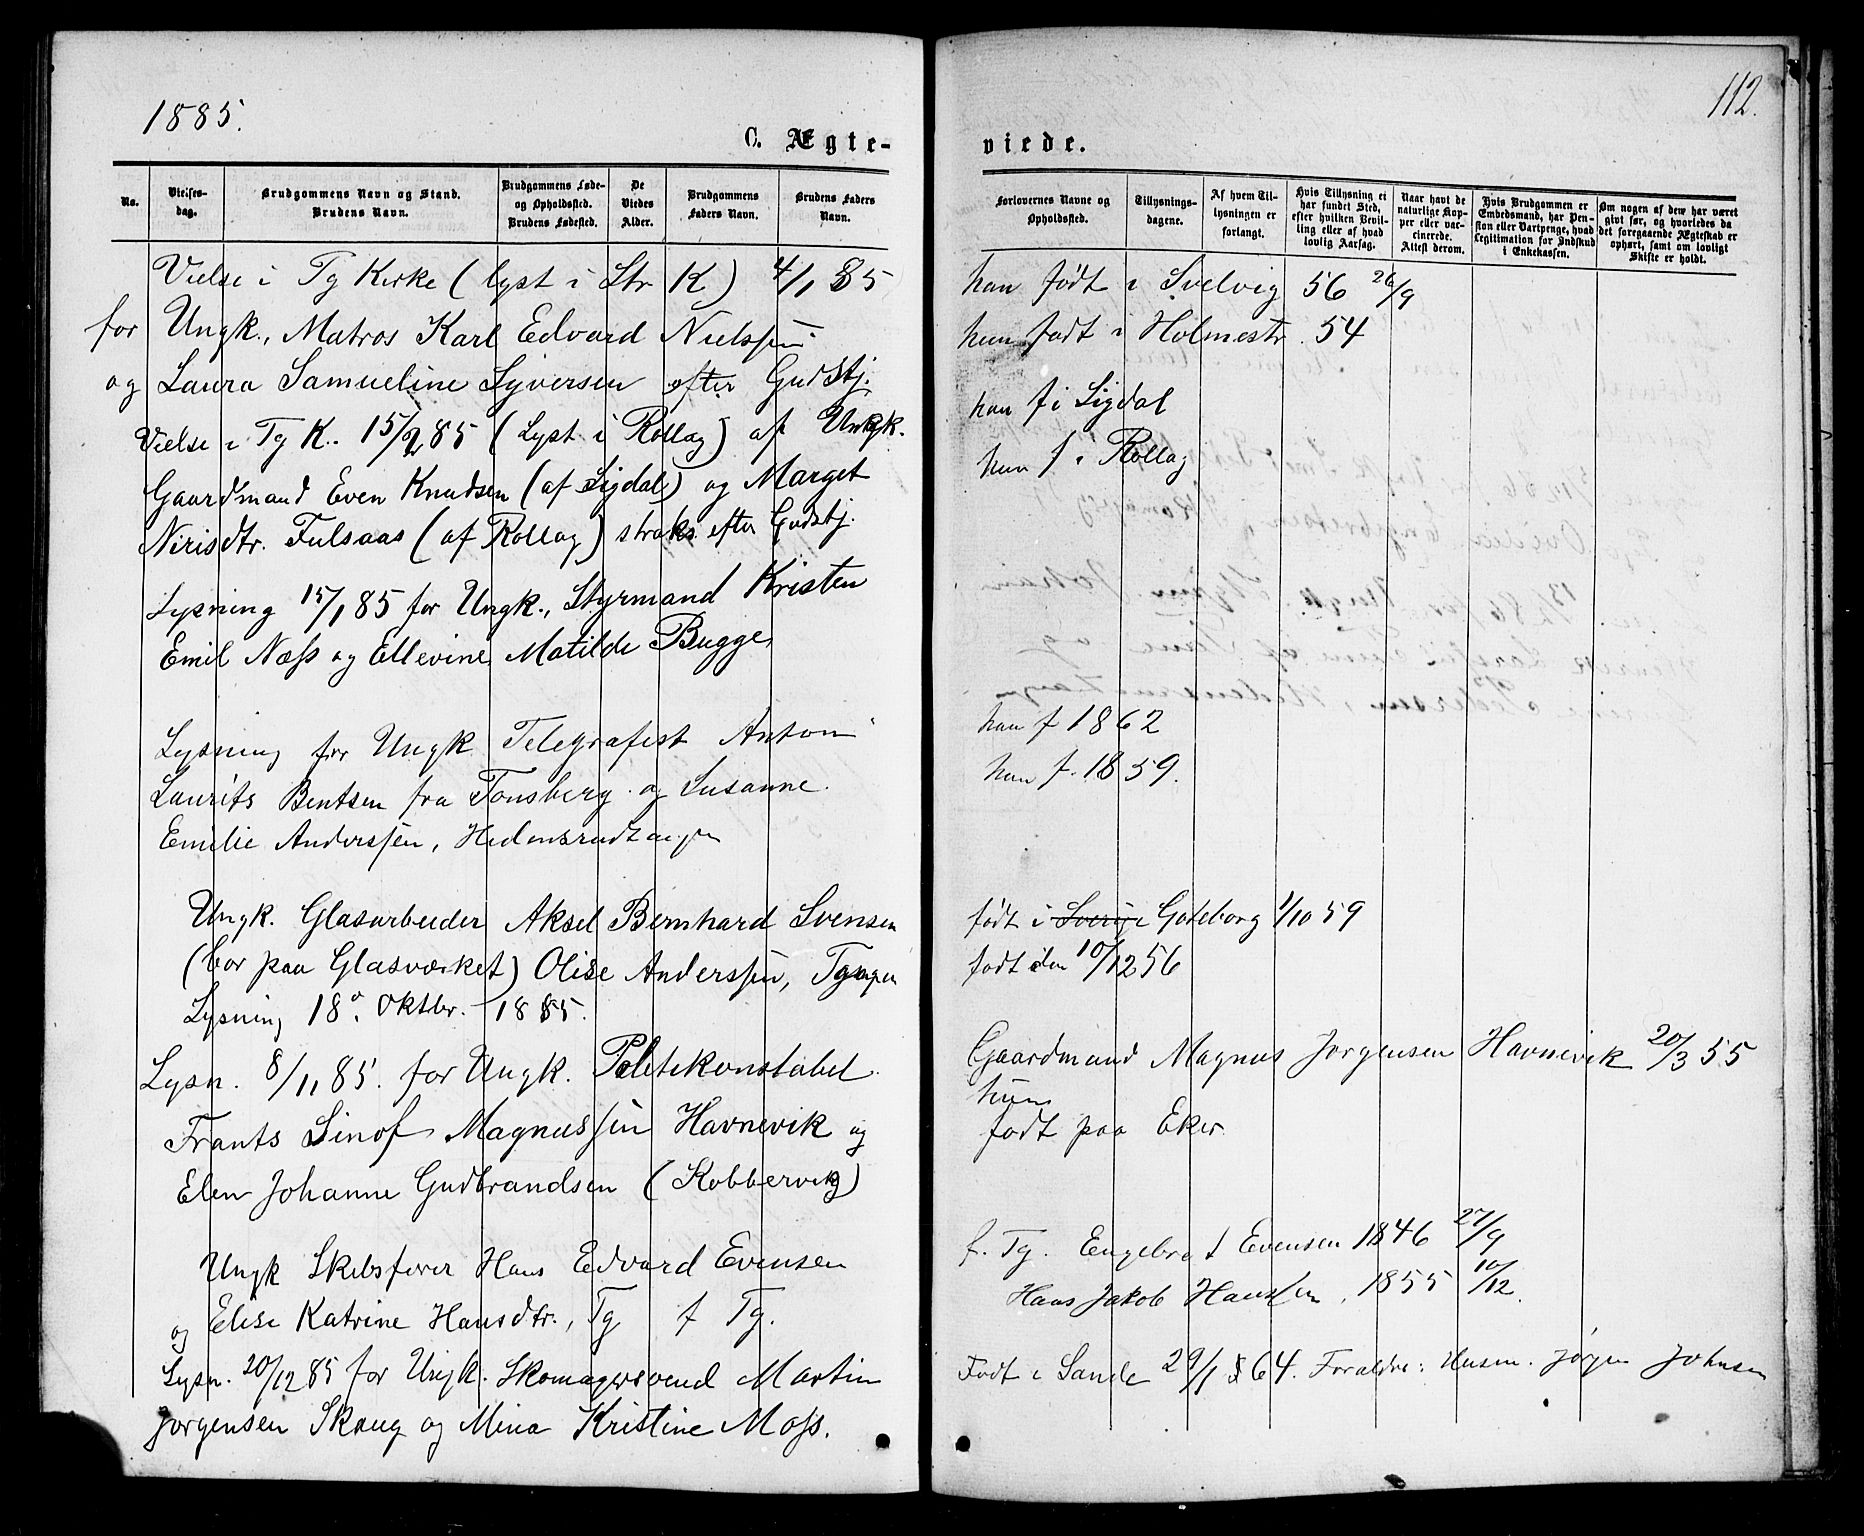 1885.
C. Ægte-
No.
Vielses-
dag.
Brudgommens Navn og Stand.
Brudens Navn.
Brudgommens Føde-
og Opholdssted.
Brudens Fødested.
De
Viedes
Alder.
Brudgommens
Faders Navn.
Brudens Faders
Navn.
Vielse i Tg Kirke (lyst i Str K) 4/1 85
for Ungk., Matros Karl Edvard Nielssen
og Laura Samueline Syversen efter Gudstj.
Vielse i Tg K. 15/2 85 (Lyst i Rollag) af Ungk.
Gaardmand Even Knudsen (af Sigdal) og Marget
Nirisdtr. Fulsaas (af Rollag) straks efter Gudstj.
Lysning 15/1 85 for Ungk., Styrmand Kristen
Emil Næss og Ellevine Matilde Bugge,
Lysning for Ungk Telegrafist Anton
Laurits Bentsen fra Tønsberg og Susanne
Emilie Anderssen, Hedensrudtangen
Ungk. Glasarbeider Aksel Bernhard Svensen
(bor paa Glasværket) Olise Anderssen, Tgangen
Lysning 18. Oktbr. 1885.
Lysn. 8/11 85. for Ungk. Politikonstabel
Frants Sinof Magnussen Havnevik og
Elen Johanne Gudbrandsen (Kobbervik)
Ungk Skibsfører Hans Edvard Evensen
og Elise Katrine Hansdtr., Tg f Tg.
Lysn. 20/12 85 for Ungk. Skomagersvend Martin
Jørgensen Skaug og Mina Kristine Moss.
112.
viede.
Forlovernes Navne og
Opholdssted.
Tillysnings-
dagene.
Af hvem Til-
lysningen er
forlangt.
Hvis Tillysning ei
har fundet Sted,
efter hvilken Bevil-
ling eller af hvad
lovlig Aarsag.
Naar havt de
naturlige Kop-
per eller vac-
cinerede.
Attest derom.
Hvis Brudgommen er
Embedsmand, har Pen-
sion eller Vartpenge, hvad
Legitimation for Indskud
i Enkekassen.
Om nogen af dem har været
givt før, og hvorledes da
det foregaaende Ægteskab er
ophørt, samt om lovligt
Skifte er holdt.
han født i Svelvig 56 26/9
hun født i Holmestr. 54
han f i Sigdal
hun f i Rollag
han f 1862
hun f. 1859.
født i Sverige Gøteborg 1/10 59
født den 10/12 56
Gaardmand Magnus Jørgensen Havnevik 20/3 55
hun
født paa Eker
f. Tg. Engebret Evensen 1846 27/9
Hans Jakob Hanssen, 1855 10/12.
Født i Sande 29/1 64. Forældre: Husm. Jørgen Johnsen